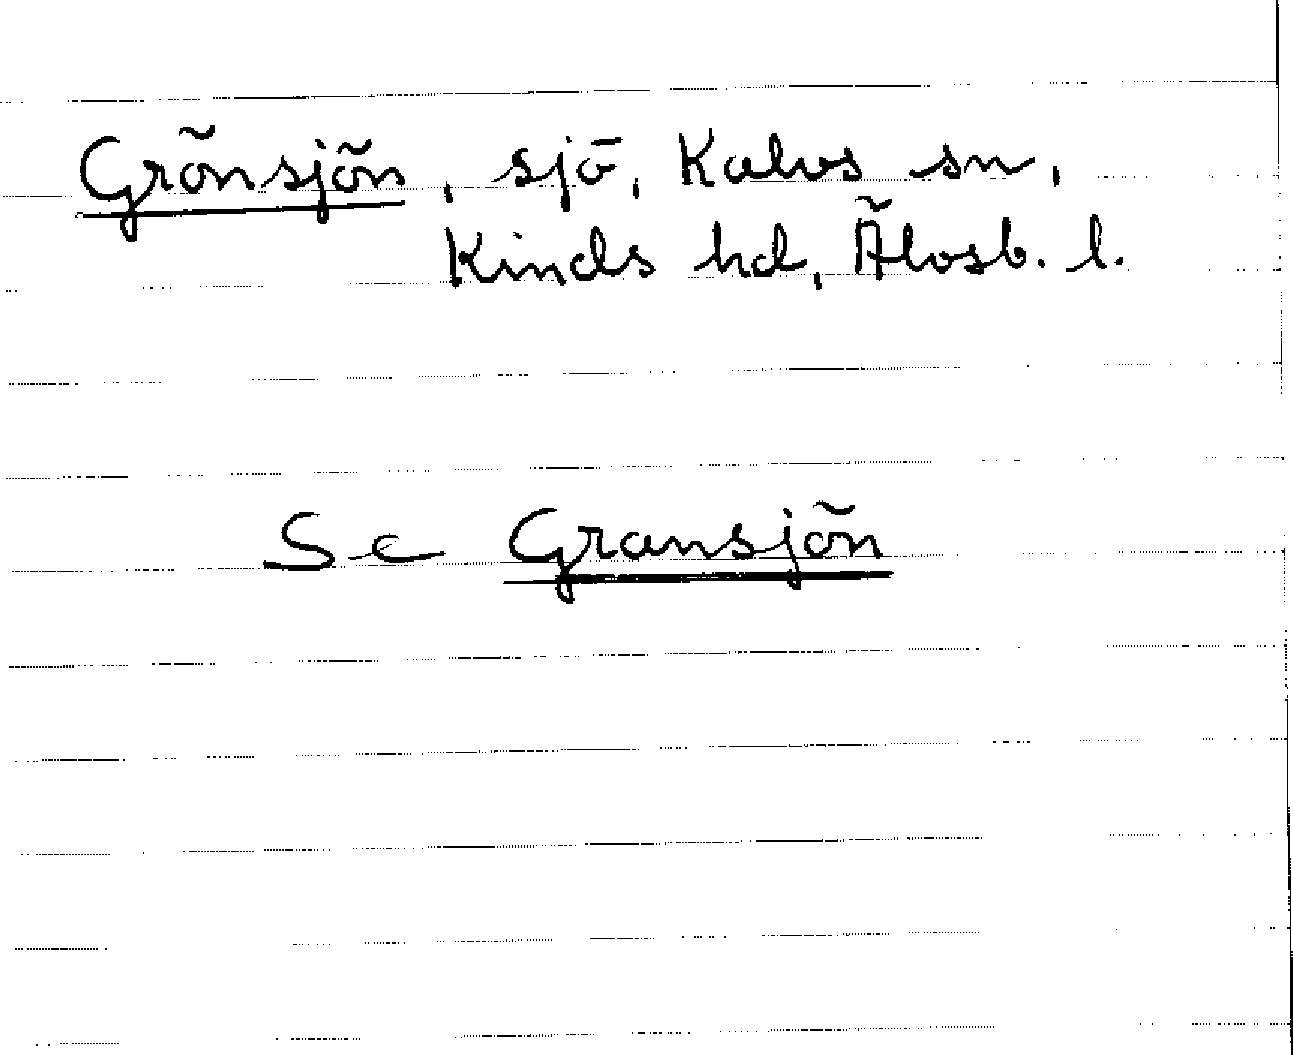 Grönsjön, sjö, Kalvs sn,
Kinds hd, Älvsb. l.
Se Gransjön